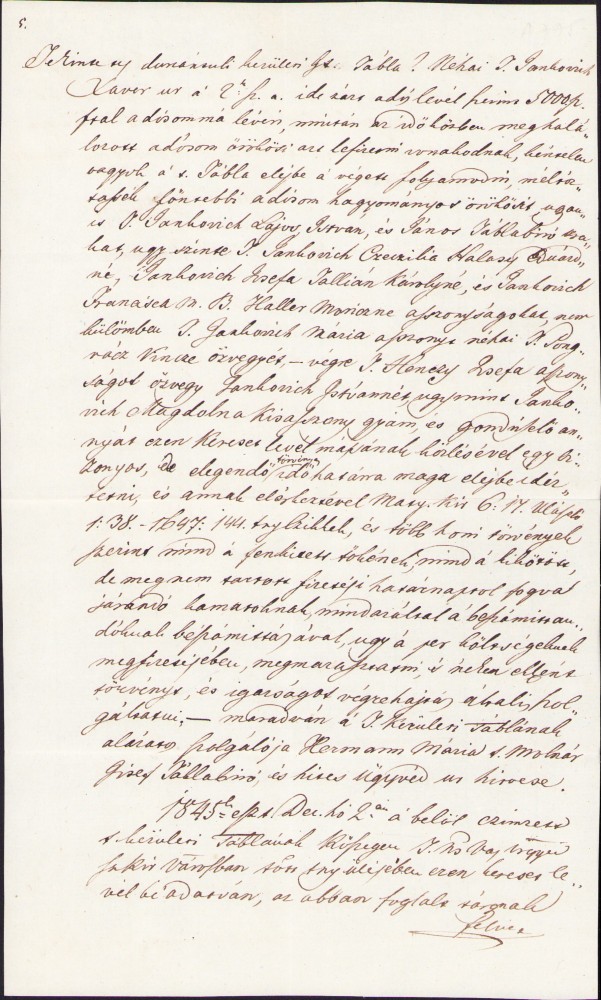 5.
Tekintetes dunántuli kerületi Tábla! Néhai T. Jankovich
Xaver ur á 2. p. a. ide zárt adó levél szerint 5000 p.
fttal adósommá lévén, miután az időközben meghalá„
lozott adósom örökösi azt lefizetni vonakodnak, kéntelen
vagyok á t. Tábla elejbe á végett folyamodni, méltóz„
tassék föntebbi adósom hagyományos örökösit, ugyan
is T. Jankovich Lajos, Istvan, és János Táblabiró ura„
kat, ugy szinte T. Jankovich Czeczilia Halasy Eduárd„
né, Jankovich Josefa Tallián Károlyné, és Jankovich
Francisca M. B. Haller Moriczne aszonyságokat, nem
külömben T. Jankovich Mária aszonyt néhai T. Pong„
rácz Vincze özvegyét, – végre T. Honczy Josefa aszony„
ságot özvegy Jankovich Istvánnét, ugymint Janko„
vich Magdolna Kisaszony gyám, és gondviselő an„
nyát ezen kereset levél mássának közlésével egy bi„
zonyos, de elegendő törvényes időhatárra maga elejbe idéz„
tetni, és annak elérkeztével Maty. Kir. 6: 17. Ulászló
1: 38. – 1647: 144. tnyczikkek, és több honi törvények
szerint mind á fenkitett tőkének, mind á kikötött,
de meg nem tartott fizetési határnaptol fogva
járandó kamatoknak, mindazáltal á beszámittan„
dóknak beszámittásával, ugy á per költségeknek
megfizetésében, megmarasztatni, 's nékem ellenök
törvényt, és igazságot végrehajtás általi szol„
gáltatni, – maradván á T. Kerületi Táblának
alázatos szolgálója Hermann Maria t. Molnár
Josef Tállabiró, és hites ügyvéd ur hitvese.
1845k eszt. Dec. hó 2án á belől czimzett
t. kerületi Táblának Kőszegen
Városban tött tny ülésében ezen kereset le„
vél béadatván, az abban foglalt társnak